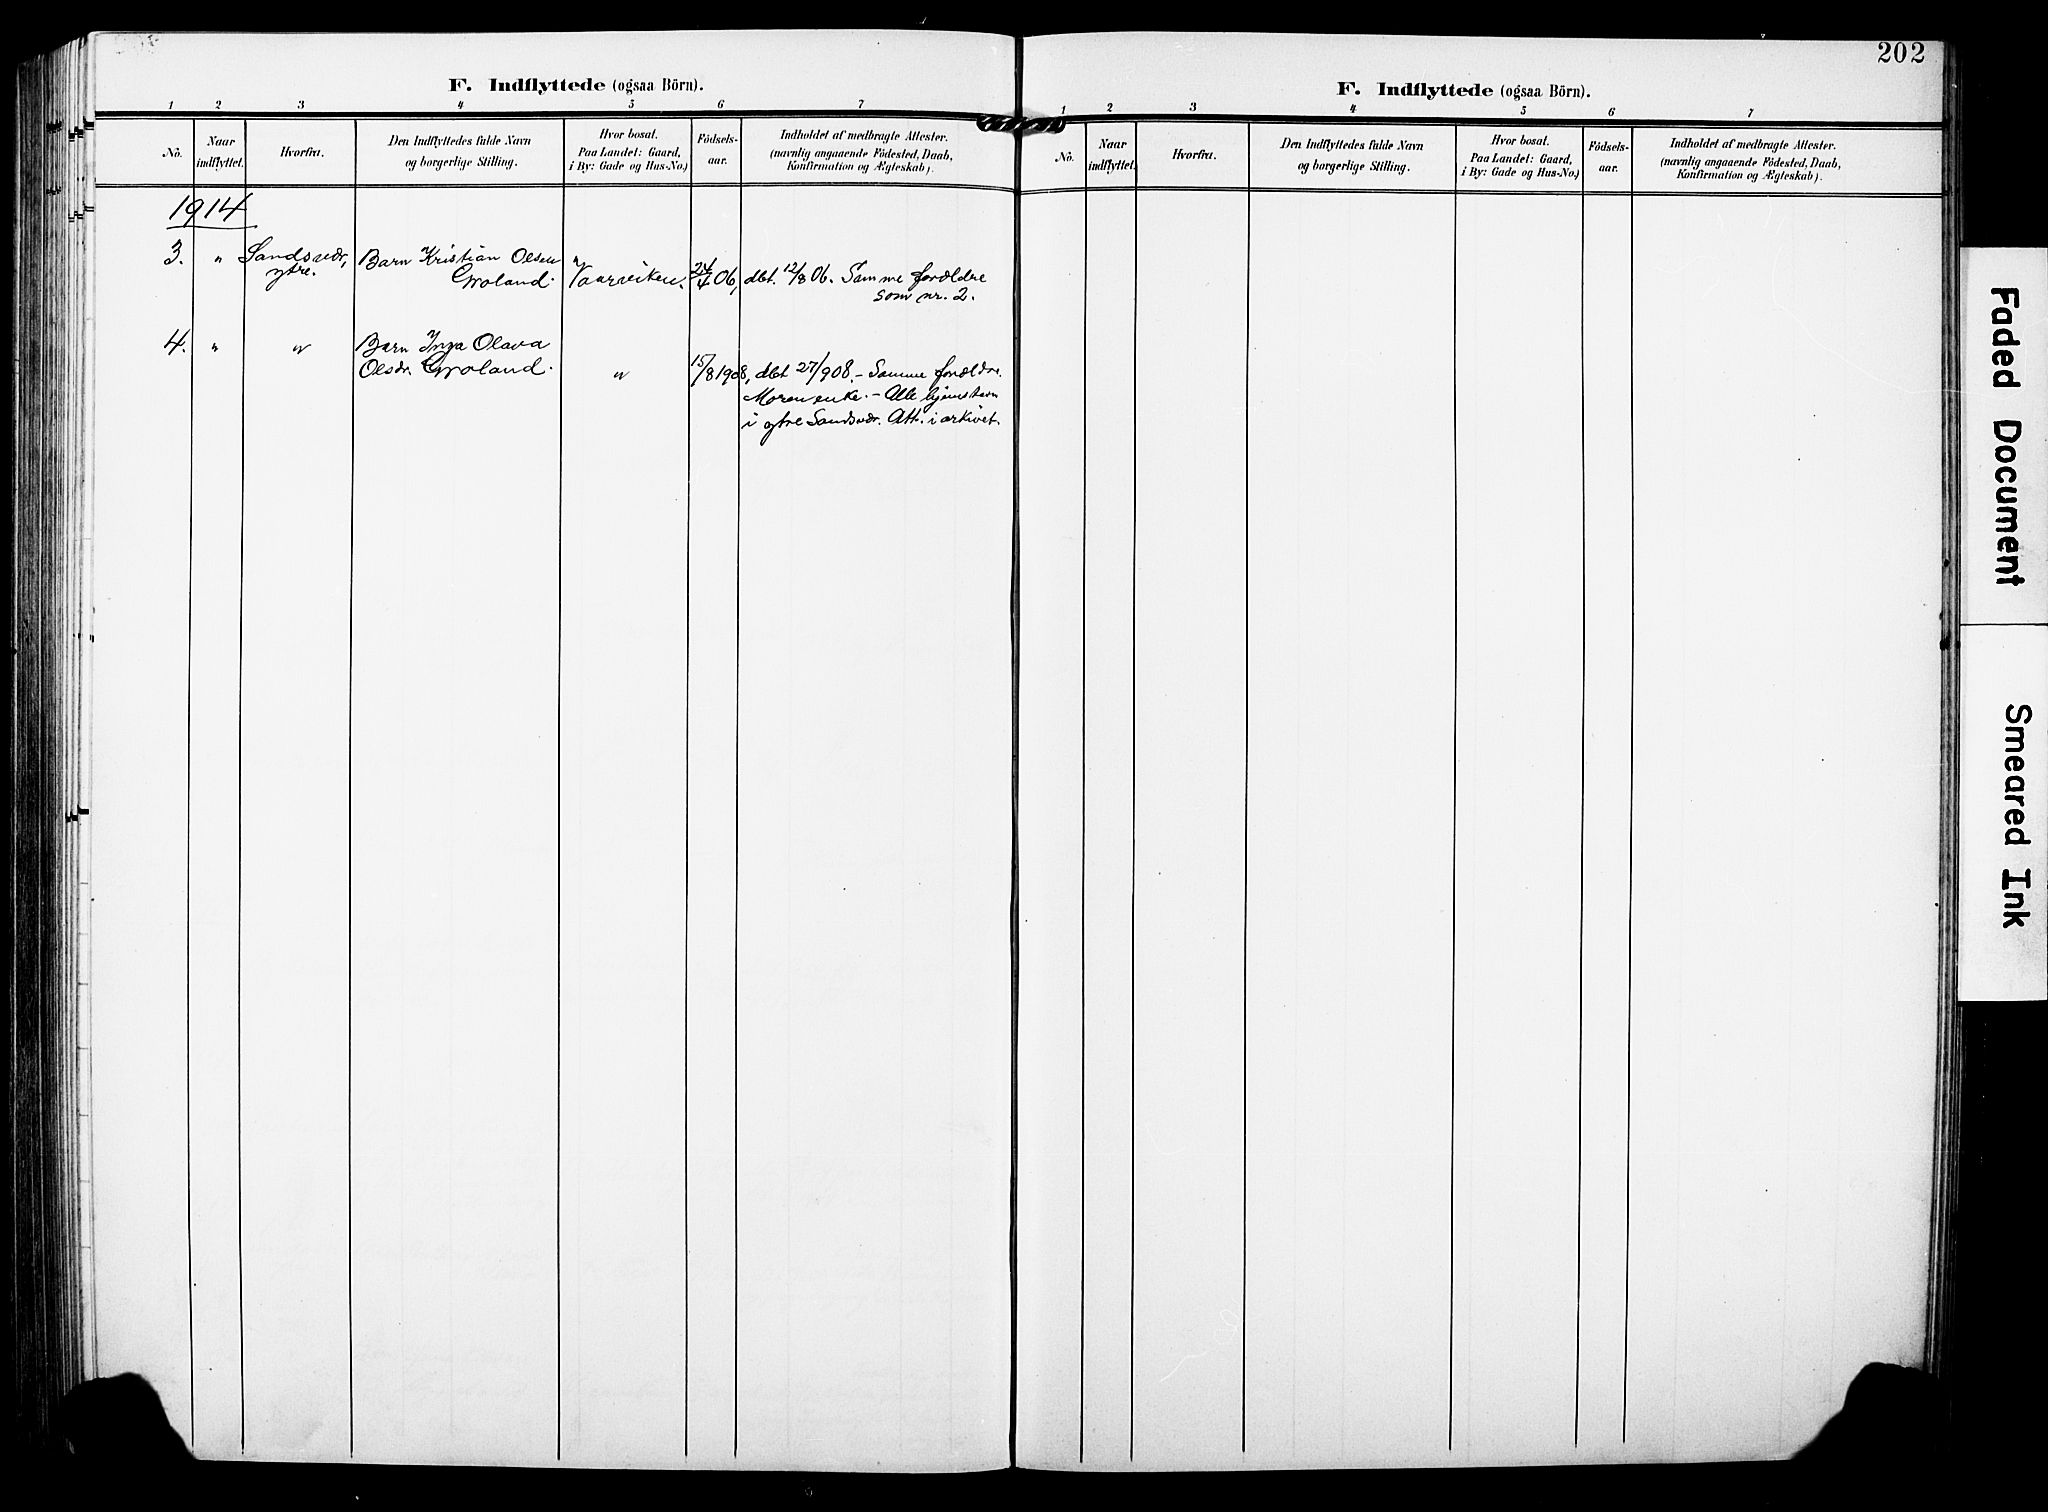 202
F. Indflyttede (ogsaa Börn).
1 2 3 4 5 6 7
No.
Naar
indflyttet.
Hvorfra.
Den Indflyttedes fulde Navn
og borgerlige Stilling.
Hvor bosat.
Paa Landet: Gaard,
i By: Gade og Hus-No.)
Födsels-
aar.
Indholdet af medbragte Attester.
(navnlig angaaende Födested, Daab,
Konfirmation og Ægteskab).
1914
3. " Sandsvær, Barn Kristian Olsen "
ytre. Groland. Vaarviken. 24/4 06, dbt. 12/8 06. Samme forældre
som nr. 2.
4. " " Barn Inga Olava
Olsdr. Groland. " 15/8 1908, dbt 27/9 08. - Samme forældre.
Moren enke. - Alle hjemstavn
i ytre Sandsvær. Att. i arkivet.
F. Indflyttede (ogsaa Börn).
1 2 3 4 5 6 7
No.
Naar
indflyttet.
Hvorfra.
Den Indflyttedes fulde Navn
og borgerlige Stilling.
Hvor bosat.
Paa Landet: Gaard,
i By: Gade og Hus-No.)
Födsels-
aar.
Indholdet af medbragte Attester.
(navnlig angaaende Födested, Daab,
Konfirmation og Ægteskab).
Faded Document
Smeared Ink